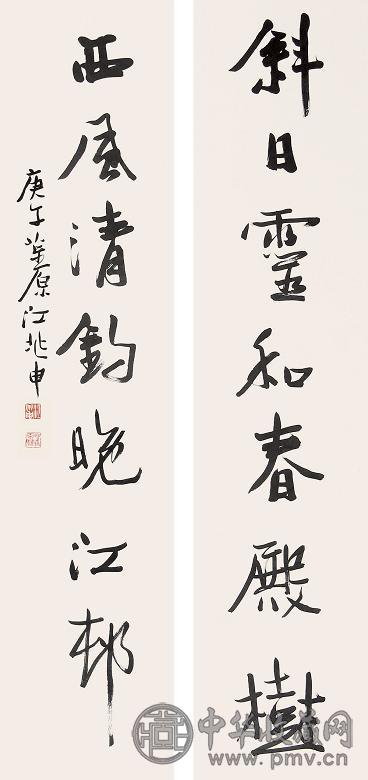 斜日靈和春殿樹
西風清釣晚江邨
庚午茮原江兆申
中华收藏网
www.pmv.cn